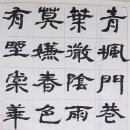 青楓門巷
葉微陰雨
莫嫌春色
有野棠華